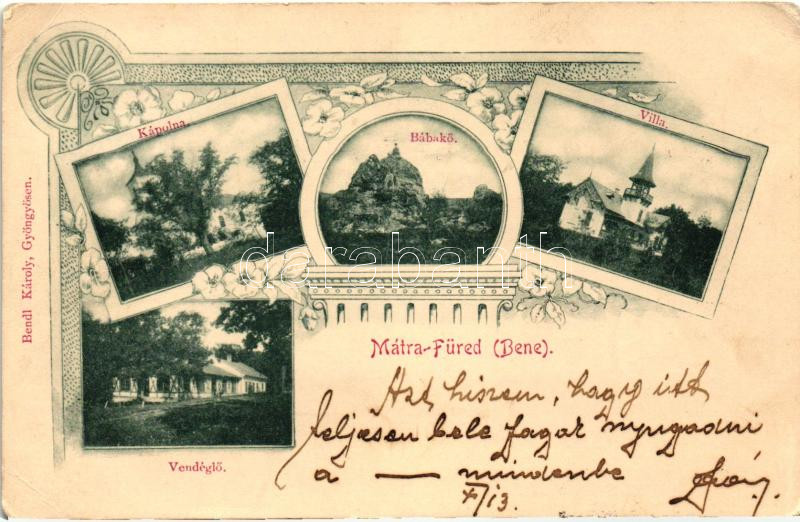 Kápolna.
Bábakő.
Villa.
Bendl Károly, Gyöngyösen.
darabanth
Mátra-Füred (Bene).
Vendéglő.
Azt hiszem, hagy itt
teljesen bele fagar nyugadni
a — mindenbe
X/13.